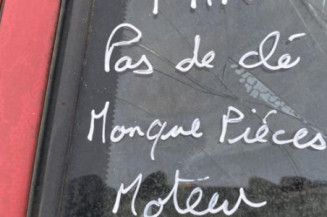 Pas de clé
Manque Pièces
Moteur